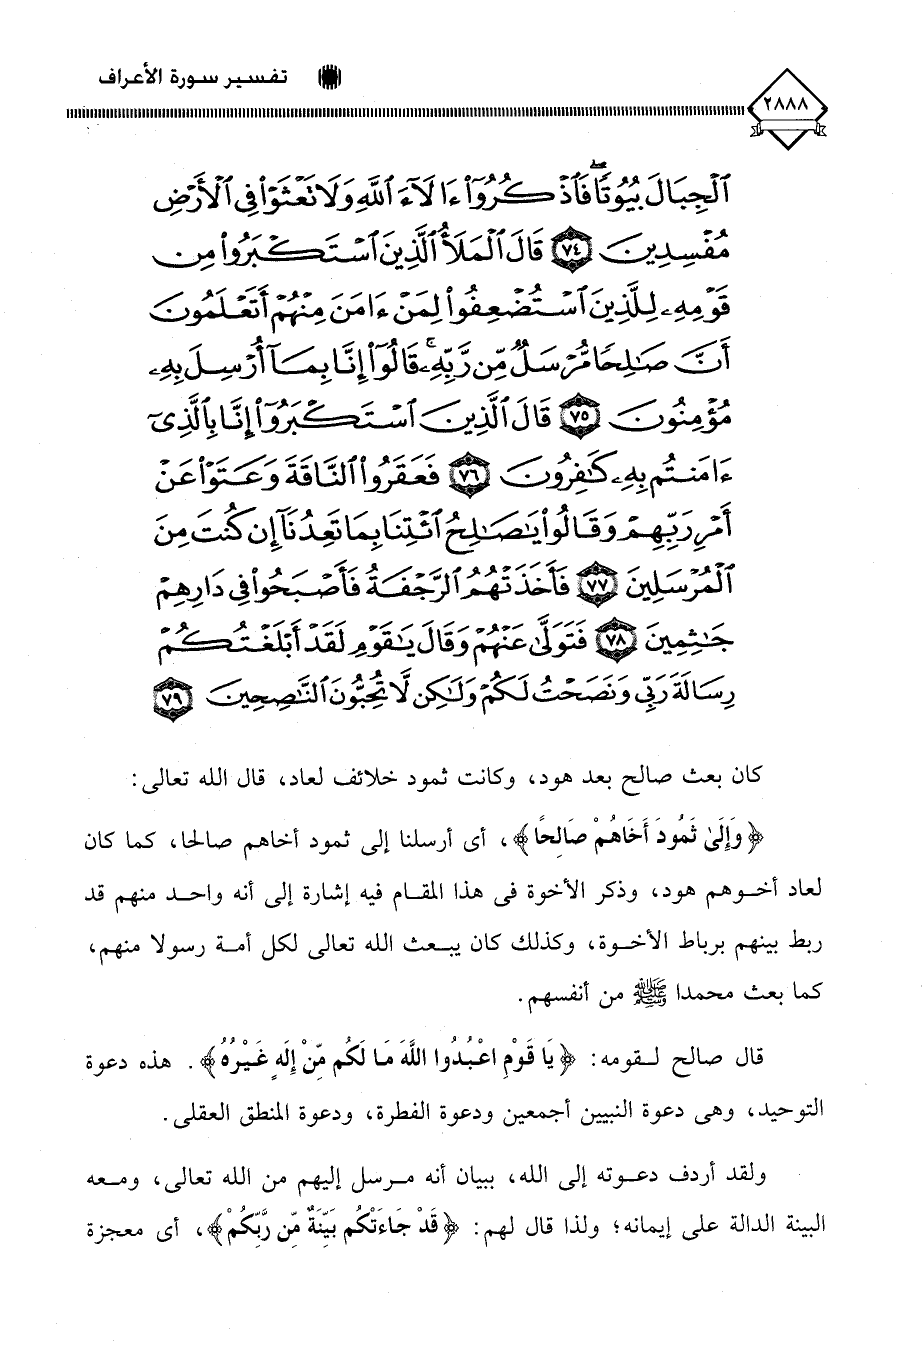 تفسير سورة الأعراف
٢٨٨٨
ٱلۡجِبَالَ بُيُوتٗاۖ فَٱذۡكُرُوٓاْ ءَالَآءَ ٱللَّهِ وَلَا تَعۡثَوۡاْ فِي ٱلۡأَرۡضِ
مُفۡسِدِينَ ٧٤ قَالَ ٱلۡمَلَأُ ٱلَّذِينَ ٱسۡتَكۡبَرُواْ مِن
قَوۡمِهِۦ لِلَّذِينَ ٱسۡتُضۡعِفُواْ لِمَنۡ ءَامَنَ مِنۡهُمۡ أَتَعۡلَمُونَ
أَنَّ صَٰلِحٗا مُّرۡسَلٞ مِّن رَّبِّهِۦۚ قَالُوٓاْ إِنَّا بِمَآ أُرۡسِلَ بِهِۦ
مُؤۡمِنُونَ ٧٥ قَالَ ٱلَّذِينَ ٱسۡتَكۡبَرُوٓاْ إِنَّا بِٱلَّذِيٓ
ءَامَنتُم بِهِۦ كَٰفِرُونَ ٧٦ فَعَقَرُواْ ٱلنَّاقَةَ وَعَتَوۡاْ عَنۡ
أَمۡرِ رَبِّهِمۡ وَقَالُواْ يَٰصَٰلِحُ ٱئۡتِنَا بِمَا تَعِدُنَآ إِن كُنتَ مِنَ
ٱلۡمُرۡسَلِينَ ٧٧ فَأَخَذَتۡهُمُ ٱلرَّجۡفَةُ فَأَصۡبَحُواْ فِي دَارِهِمۡ
جَٰثِمِينَ ٧٨ فَتَوَلَّىٰ عَنۡهُمۡ وَقَالَ يَٰقَوۡمِ لَقَدۡ أَبۡلَغۡتُكُمۡ
رِسَالَةَ رَبِّي وَنَصَحۡتُ لَكُمۡ وَلَٰكِن لَّا تُحِبُّونَ ٱلنَّٰصِحِينَ ٧٩
كان بعث صالح بعد هود، وكانت ثمود خلائف لعاد، قال الله تعالى:
﴿وَإِلَىٰ ثَمُودَ أَخَاهُمْ صَالِحًا﴾، أى أرسلنا إلى ثمود أخاهم صالحا، كما كان
لعاد أخوهم هود، وذكر الأخوة فى هذا المقام فيه إشارة إلى أنه واحد منهم قد
ربط بينهم برباط الأخوة، وكذلك كان يبعث الله تعالى لكل أمة رسولا منهم،
كما بعث محمدا ﷺ من أنفسهم.
قال صالح لقومه: ﴿يَا قَوْمِ اعْبُدُوا اللَّهَ مَا لَكُم مِّنْ إِلَهٍ غَيْرُهُ﴾. هذه دعوة
التوحيد، وهى دعوة النبيين أجمعين ودعوة الفطرة، ودعوة المنطق العقلى.
ولقد أردف دعوته إلى الله، ببيان أنه مرسل إليهم من الله تعالى، ومعه
البينة الدالة على إيمانه؛ ولذا قال لهم: ﴿قَدْ جَاءَتْكُم بَيِّنَةٌ مِّن رَّبِّكُمْ﴾، أى معجزة